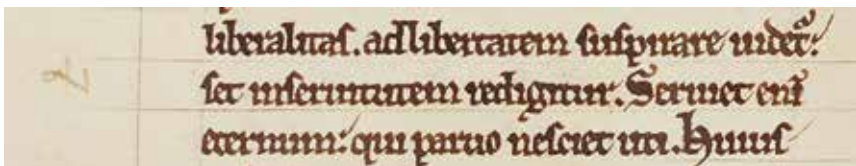 liberalitaſ. ad libertatem ſuſpirare uidet᷑:
ſet inſeruitutem redigitur. Seruiet eni̅
eternum: qui paruo neſciet uti. Huiuſ